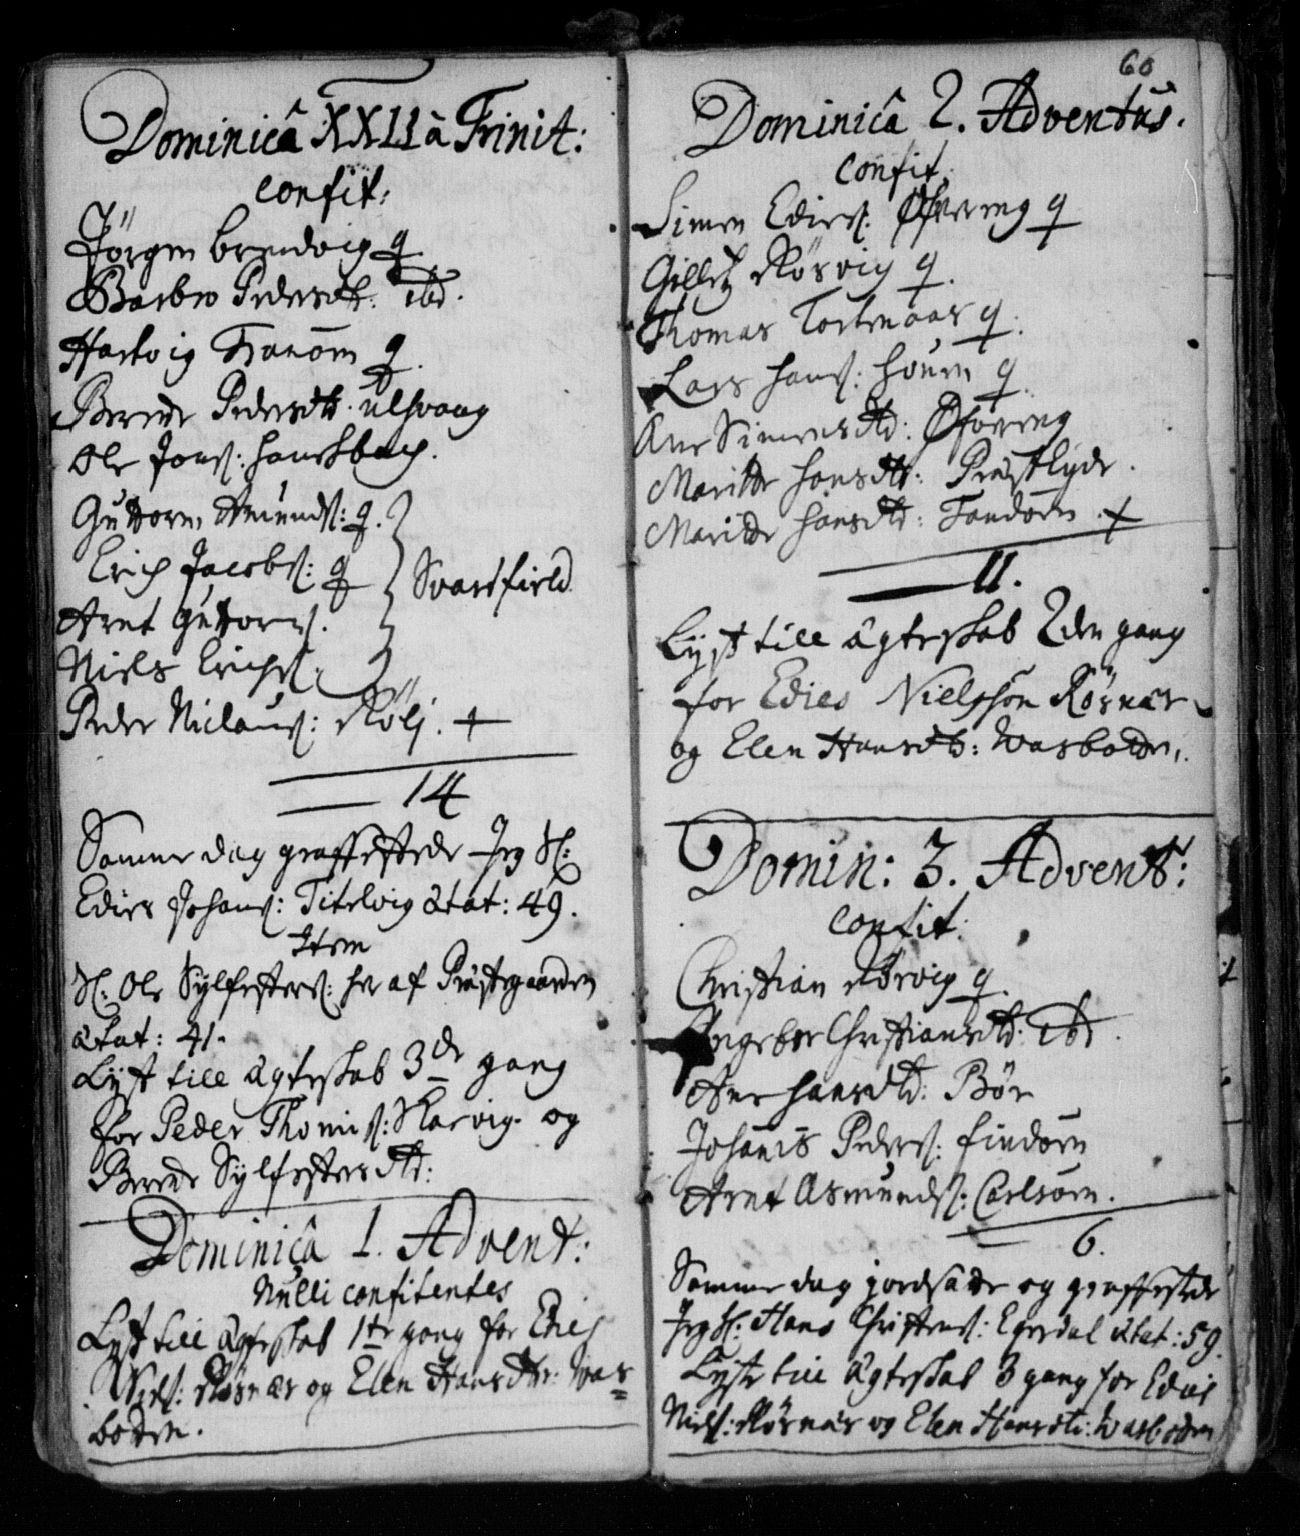 Dominicâ XXII â Trinit:
confit:
Jörgen Brendvig q
Barbro Pedersdtr: ibd.
Hartvig Tranöen q
Berete Pedersdtr. Ulsvaag
Ole Jons:
Guttorm Amunds: q.
Erich Jacobs: q
Svartfield
Arnt Guttorms.
Niels Erichs.
Peder Niclaus: Röli. +
14
Samme dag graffestede Jeg Sl:
Edies Johans: Titelvig ætat: 49.
Item
Sl: Ole Sylfesters: her af Præstegaarden
ætat: 41.
Lyst till ægteskab 3de gang
for Peder Thomis: Skarvig. og
Berete Sylfestersdtr:
Dominicâ 1. Advent:
Nulli confitentes
Lyst till ægteskab 1te gang for Edies
Niels: Rösnæs og Elen Hansdtr: Was=
boden.
60
Dominicâ 2. Adventûs.
confit.
Simen Edies: Øfvereng q
Rösvig q.
Thomas q.
Lars Hans: q.
Ane Simensdtr: Øfvereng
Maritte Hansdtr: Præstlyde.
Maritte Hansdtr: Tandöen. +
11.
Lyst till ægteskab 2den gang
for Edies Nielssön Rösnæs
og Elen Hansdtr: Wasboden.
Domin: 3. Advent:
confit:
Christian Rörvig q.
Ingebor Christiansdtr: ibd.
Ane Hansdtr: Bör
Johannis Peders: Findöen
Arnt Asmunds: Carlsöen.
6.
Samme dag jordsatte og graffestede
Jeg Sl: Hans Christens: Egerdal ætat: 59.
Lyste till ægteskab 3 gang for Edies
Niels: Rösnæs og Elen Hansdtr: Wasboden